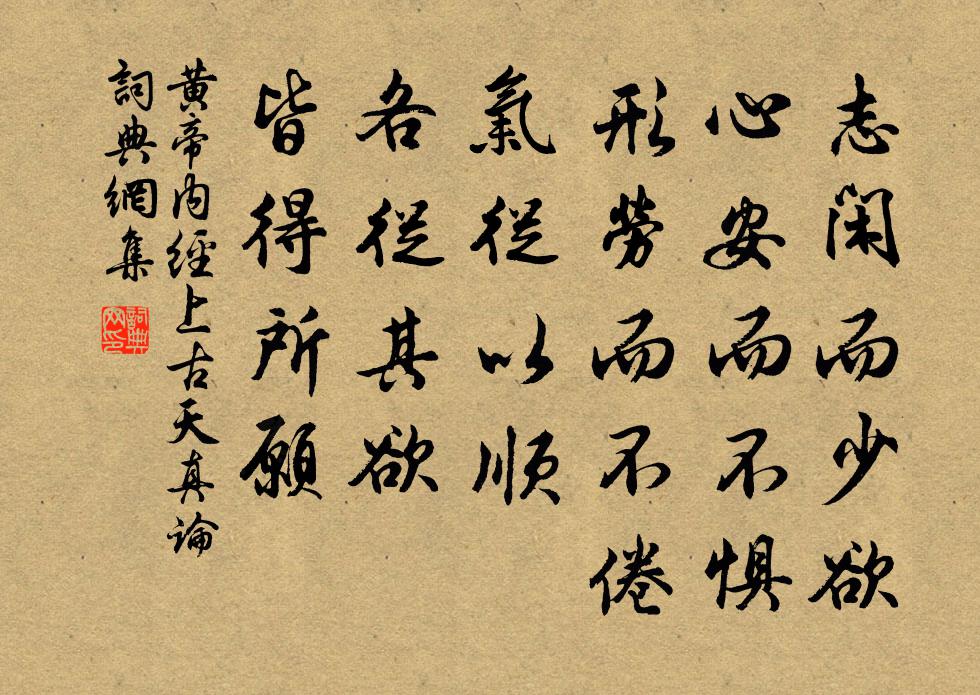 志闲而少欲
心安而不惧
形勞而不倦
氣從以順
各從其欲
皆得所願
黄帝内經上古天真論
詞典網集
詞典网印